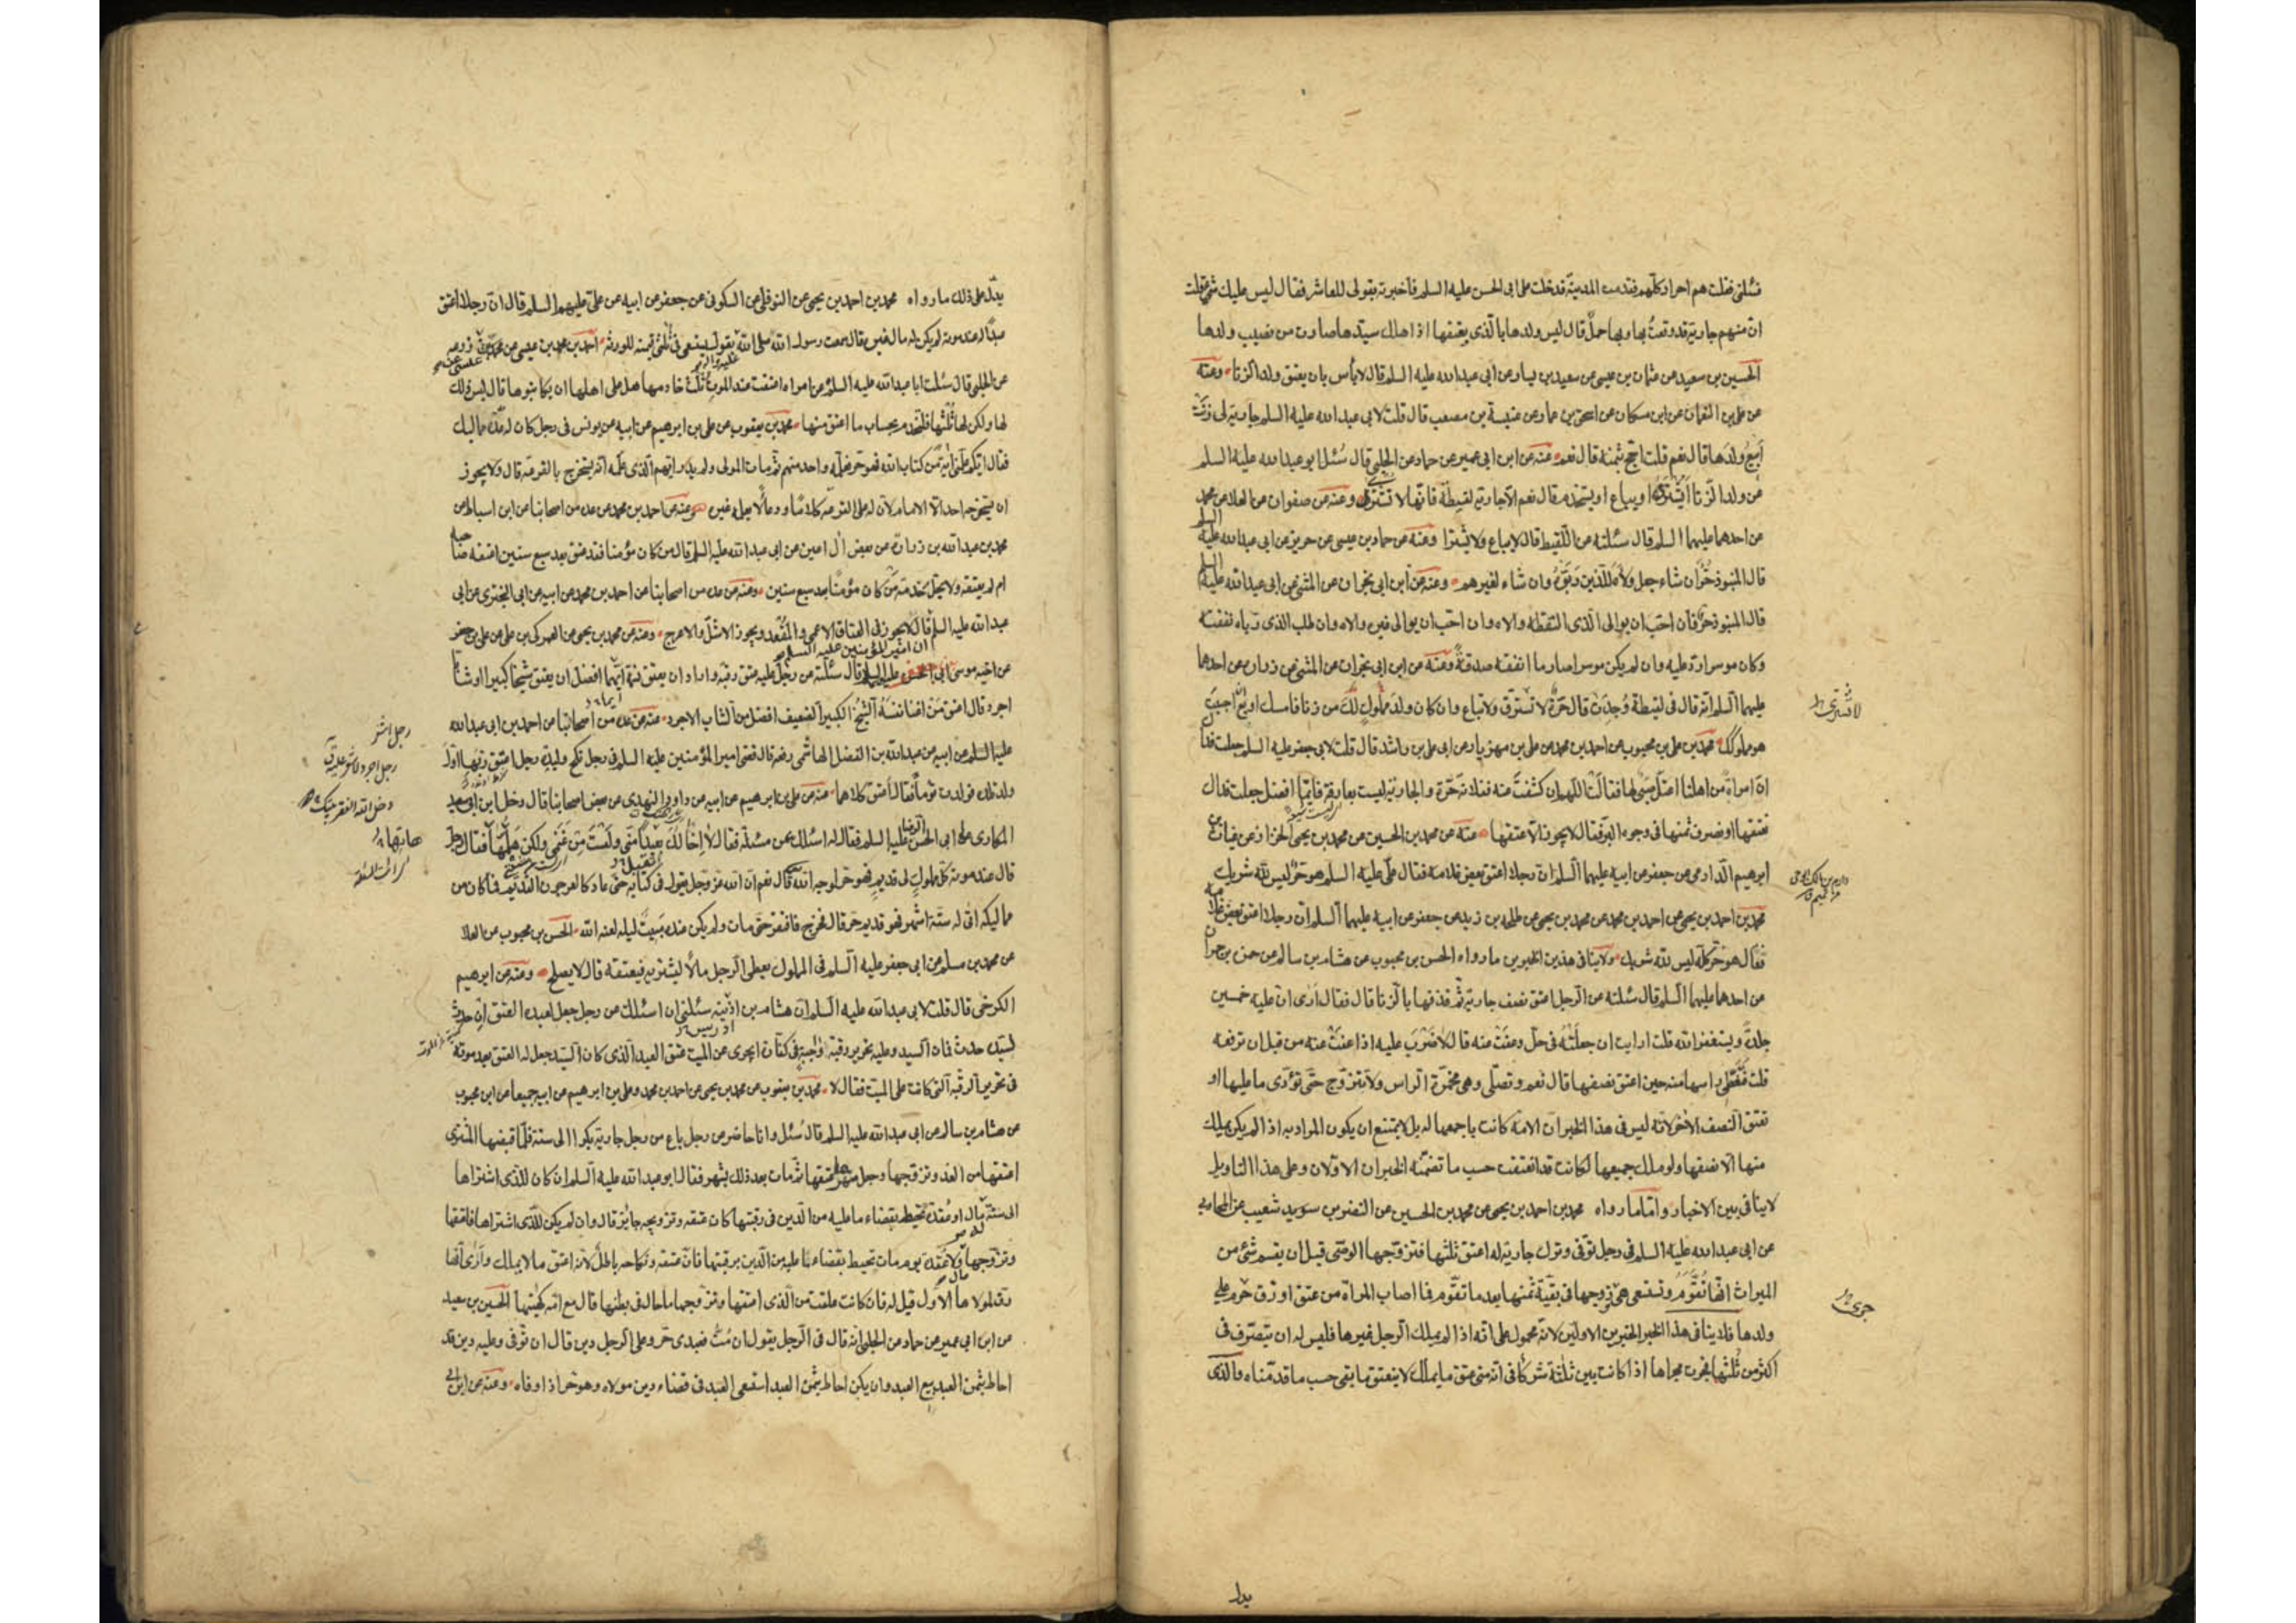 فسئلنى فقلت هم احرار كلهم فقدمت المدينة فدخلت على ابى الحسن عليه السلم فاخبرته بقولى للعاشر فقال ليس عليك شئ فقلت
ان منهم جارية قد وقعت بها وبها حمل قال ليس ولدها بالذى يعتقها اذا هلك سيدها صارت من نصيب ولدها
الحسين بن سعيد عن عثمان بن عيسى عن سعيد بن يسار عن ابى عبدالله عليه السلم قال لا بأس بان يعتق ولد الزنا وعنه
عن على بن النعمان عن ابن مسكان عن اسحق بن عمار عن عنبسة بن مصعب قال قلت لابى عبدالله عليه السلم جارية لى زنت
ابيع ولدها قال نعم قلت احج بثمنه قال نعم عنه عن ابن ابى عمير عن حماد عن الحلبى قال سئل ابو عبدالله عليه السلم
عن ولد الزنا ايشترى او يباع او يستخدم قال نعم الا جارية لقيطة فانها لا تشترى وعنه عن صفوان عن العلا عن محمد
عن احدهما عليهما السلم قال سئلته عن اللقيط قال لا يباع ولا يشترا وعنه عن حماد بن عيسى عن حريز عن ابى عبدالله عليه السلم
قال المنبوذ حر ان شاء جعل ولاه للذين ربوه وان شاء لغيرهم وعنه عن ابن ابى نجران عن المثنى عن ابى عبدالله عليه السلم
قال المنبوذ حر فان احب ان يوالى الذى التقطه والاه وان احب ان يوالى غيره والاه وان طلب الذى رباه نفقته
وكان موسرا رد عليه وان لم يكن موسرا صار ما انفقه صدقة وعنه عن ابن ابى نجران عن المثنى عن زرارة عن احدهما
عليهما السلم انه قال فى لقيطة وجدت قال حرة لا تسترق ولا تباع وان كان ولد مملوك لك من زنا فامسك او بع ان احببت
هو مملوك محمد بن على بن محبوب عن احمد بن محمد عن على بن مهزيار عن ابى على بن راشد قال قلت لابى جعفر عليه السلم جعلت فداك
ان امراة من اهلنا اعتل صبى لها فقالت اللهم ان كشفت عنه ففلانة حرة والجارية ليست بعارفة فايما افضل جعلت فداك
تعتقها او تصرف ثمنها فى وجوه البر فقال لا يجوز الا عتقها عنه عن محمد بن الحسين عن محمد بن يحيى الخزاز عن غياث بن
ابرهيم الدارمى عن جعفر عن ابيه عليهما السلم ان رجلا اعتق بعض غلامه فقال على عليه السلم هو حر ليس لله شريك
محمد بن احمد بن يحيى عن احمد بن محمد عن محمد بن يحيى عن طلحة بن زيد عن جعفر عن ابيه عليهما السلم ان رجلا اعتق بعض غلامه
فقال هو حر كله ليس لله شريك ولا ينافى هذين الخبرين ما رواه الحسن بن محبوب عن هشام بن سالم عن حمزة بن حمران
عن احدهما عليهما السلم قال سئلته عن الرجل اعتق نصف جارية ثم قذفها بالزنا قال فقال ارى ان عليه خمسين
جلدة ويستغفر الله قلت ارايت ان جعلته فى حل وعفت عنه قال لا ضرب عليه اذا عفت عنه من قبل ان ترفعه
قلت فتغطى راسها منه حين اعتق نصفها قال نعم وتصلى وهى مخمرة الراس ولا تتزوج حتى تؤدى ما عليها او
تعتق النصف الآخر لانه ليس فى هذا الخبر ان الامة كانت باجمعها له بل لا يمتنع ان يكون المراد به اذا لم يكن يملك
منها الا نصفها ولو ملك جميعها لكانت قد انعتقت حسب ما تضمنه الخبران الاولان وعلى هذا التاويل
لا ينافى بين الاخبار واما ما رواه محمد بن احمد بن يحيى عن محمد بن الحسين عن النضر بن سويد شعيب عن المحاربى
عن ابى عبدالله عليه السلم فى رجل توفى وترك جارية له اعتق ثلثها فتزوجها الوصى قبل ان يقسم شئ من
الميراث انها تقوم وتستعى هى وزوجها فى بقية ثمنها بعد ما تقوم فما اصاب المراة من عتق او رق جرى على
ولدها فلا ينافى هذا الخبر الخبرين الاولين لانه محمول على انه اذا لم يملك الرجل غيرها فليس له ان يتصرف فى
اكثر من ثلثها فجرت مجراها اذا كانت بين ثلثة شركا فى انه متى عتق ما يملك لا ينعتق ما بقى حسب ما قدمناه والذى
لا تشترى
جرى
يدل
يدل على ذلك ما رواه محمد بن احمد بن يحيى عن النوفلى عن السكونى عن جعفر عن ابيه عن على عليهم السلم قال ان رجلا اعتق
عبدا له عند موته لم يكن له مال غيره قال سمعت رسول الله صلى الله عليه واله يقول يستسعى فى ثلثى قيمته للورثة احمد بن محمد بن عيسى عن
عن الحلبى قال سئلت ابا عبدالله عليه السلم عن امراة اعتقت عند الموت ثلث خادمها هل على اهلها ان يكاتبوها قال ليس ذلك
لها ولكن لها ثلثها فلتخدم بحساب ما اعتق منها محمد بن يعقوب عن على بن ابرهيم عن ابيه عن يونس فى رجل كان له عدة مماليك
فقال ايكم علمنى آية من كتاب الله فهو حر فعلمه واحد منهم ثم مات المولى ولم يدر ايهم الذى علمه انه يستخرج بالقرعة قال ولا يجوز
ان يستخرجه احد الا الامام لان له على القرعة كلاما ودعاء لا يعلمه غيره وعنه عن احمد بن محمد عن عدة من اصحابنا عن ابن اسباط عن
محمد بن عبدالله بن زرارة عن بعض آل اعين عن ابى عبدالله عليه السلم قال من كان مؤمنا فقد عتق بعد سبع سنين اعتقه صاحبه
ام لم يعتقه ولا يحل خدمة من كان مؤمنا بعد سبع سنين وعنه عن عدة من اصحابنا عن احمد بن محمد عن ابيه عن ابى البخترى عن ابى
عبدالله عليه السلم ان امير المؤمنين عليه السلام قال لا يجوز فى العتاق الاعمى والمقعد ويجوز الاشل والاعرج وعنه عن محمد بن يحيى عن العمركى بن على عن على بن جعفر
عن اخيه موسى ابى الحسن عليه السلم قال سئلته عن رجل عليه عتق رقبة واراد ان يعتق نسمة ايهما افضل ان يعتق شيخا كبيرا او شابا
اجرد قال اعتق من اغنا نفسه الشيخ الكبير الضعيف افضل من الشاب الاجرد عنه عن عدة من اصحابنا عن احمد بن ابى عبدالله
عليه السلم عن ابيه عن عبدالله بن الفضل الهاشمى رفعه قال قضى امير المؤمنين عليه السلم فى رجل نكح وليدة رجل اعتق ربها اول
ولد تلده فولدت توأما فقال اعتق كلاهما عنه عن على بن ابرهيم عن ابيه عن داود النهدى عن بعض اصحابنا قال دخل ابن ابى سعيد
المكارى على ابى الحسن الرضا عليه السلم فقال له اسئلك عن مسئلة فقال لا اخالك تقبل منى ولست من غنمى ولكن هلمها فقال رجل
قال عند موته كل مملوك لى قديم فهو حر لوجه الله قال نعم ان الله عز وجل يقول فى كتابه حتى عاد كالعرجون القديم فما كان من
مماليكه اتى له ستة اشهر فهو قديم حر قال فخرج فافتقر حتى مات ولم يكن عنده مبيت ليلة لعنه الله الحسن بن محبوب عن العلا
عن محمد بن مسلم عن ابى جعفر عليه السلم فى المملوك يعطى الرجل مالا ليشتريه فيعتقه قال لا يصلح وعنه عن ابرهيم
الكرخى قال قلت لابى عبدالله عليه السلم ان هشام بن اذينة سئلنى ان اسئلك عن رجل جعل لعبده العتق ان حدث
لسيده حدث فمات السيد وعليه تحرير رقبة واجبة فى كفارة ايجزى عن الميت عتق العبد الذى كان السيد جعل له العتق بعد موته
فى تحرير الرقبة التى كانت على الميت فقال لا محمد بن يعقوب عن محمد بن يحيى عن احمد بن محمد وعلى بن ابرهيم عن ابيه جميعا عن ابن محبوب
عن هشام بن سالم عن ابى عبدالله عليه السلم قال سئل وانا حاضر عن رجل باع من رجل جارية بكرا الى سنة فلما قبضها المشترى
اعتقها من الغد وتزوجها وجعل مهرها عتقها ثم مات بعد ذلك بشهر فقال ابو عبدالله عليه السلم ان كان للذى اشتراها
الى سنة مال او عقدة تحيط بقضاء ما عليه من الدين فى رقبتها كان عتقه وتزويجه جايز قال وان لم يكن للذى اشتراها فاعتقها
وتزوجها مال ولا عقدة يوم مات تحيط بقضاء ما عليه من الدين برقبتها فان عتقه ونكاحه باطل لانه اعتق ما لا يملك وارى انها
رق لمولاها الاول قيل له فان كانت علقت من الذى اعتقها وتزوجها ما حال فى بطنها قال مع امه كهيئتها الحسين بن سعيد
عن ابن ابى عمير عن حماد عن الحلبى انه قال فى الرجل يقول ان مت فعبدى حر وعلى الرجل دين قال ان توفى وعليه دين قد
احاط بثمن العبد بيع العبد وان يكن احاط بثمن العبد استسعى العبد فى قضاء دين مولاه وهو حر اذا وفاه وعنه عن ابن ابى